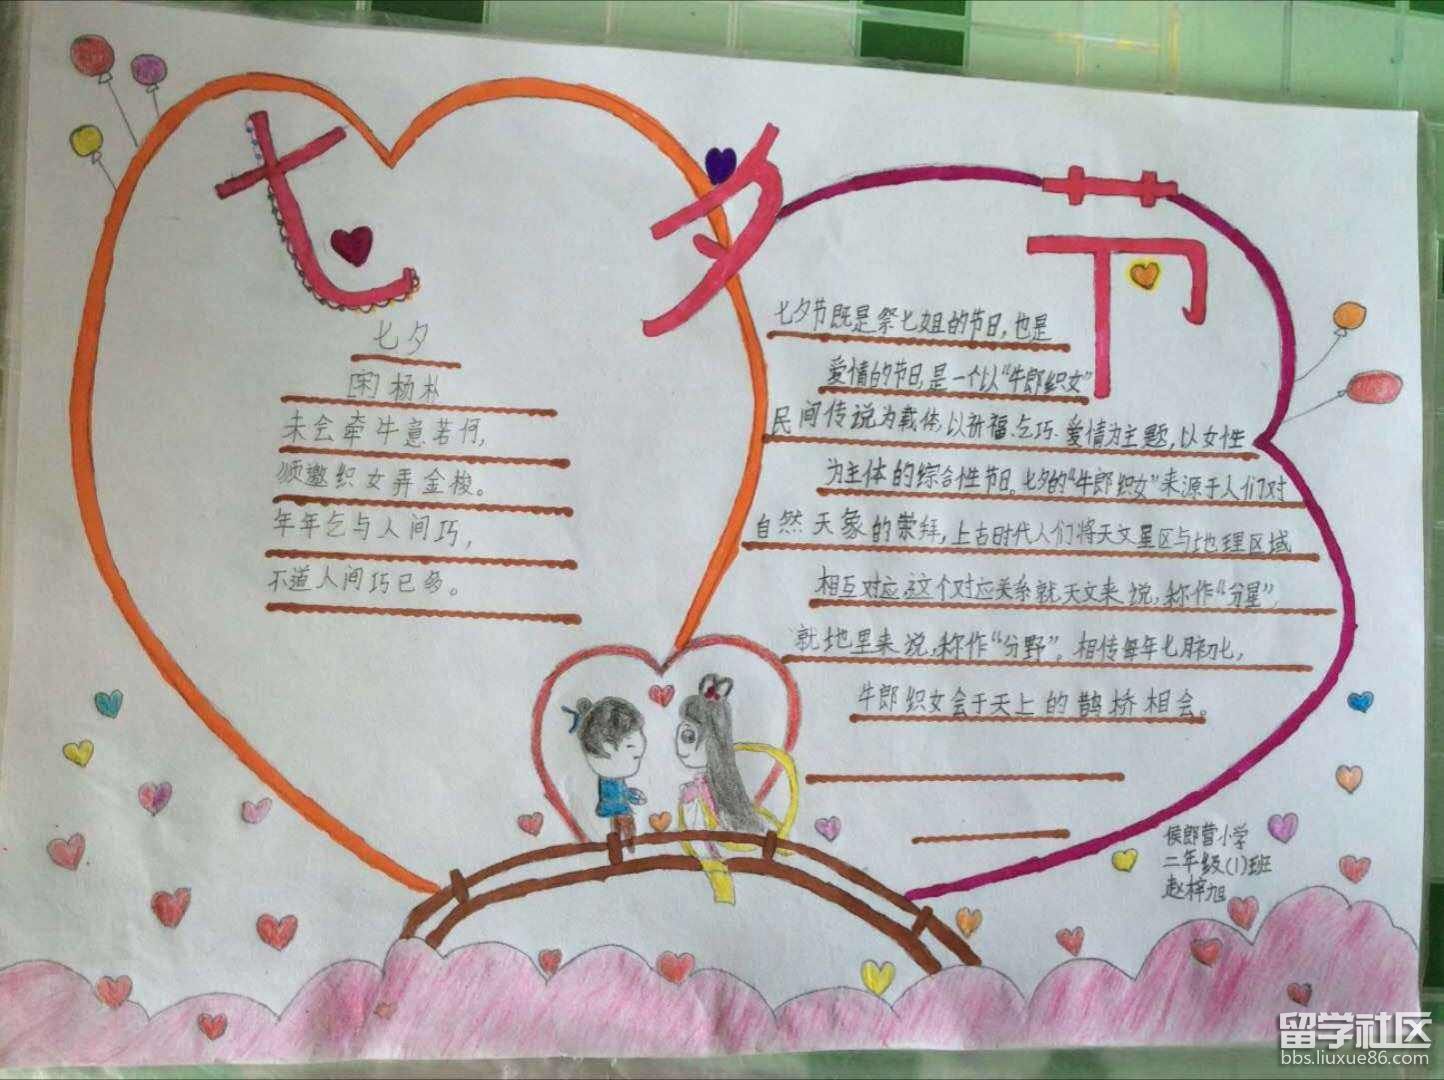 七夕节
七夕
[宋]杨朴
未会牵牛意若何,
须邀织女弄金梭。
年年乞与人间巧,
不道人间巧已多。
七夕节既是祭七姐的节日,也是
爱情的节日,是一个以“牛郎织女”
民间传说为载体,以祈福、乞巧、爱情为主题,以女性
为主体的综合性节日。七夕的“牛郎织女”来源于人们对
自然天象的崇拜,上古时代人们将天文星区与地理区域
相互对应,这个对应关系就天文来说,称作“分星”,
就地里来说,称作“分野”。相传每年七月初七,
牛郎织女会于天上的鹊桥相会。
侯郎营小学
二年级(1)班
赵梓旭
留学社区
bbs.liuxue86.com